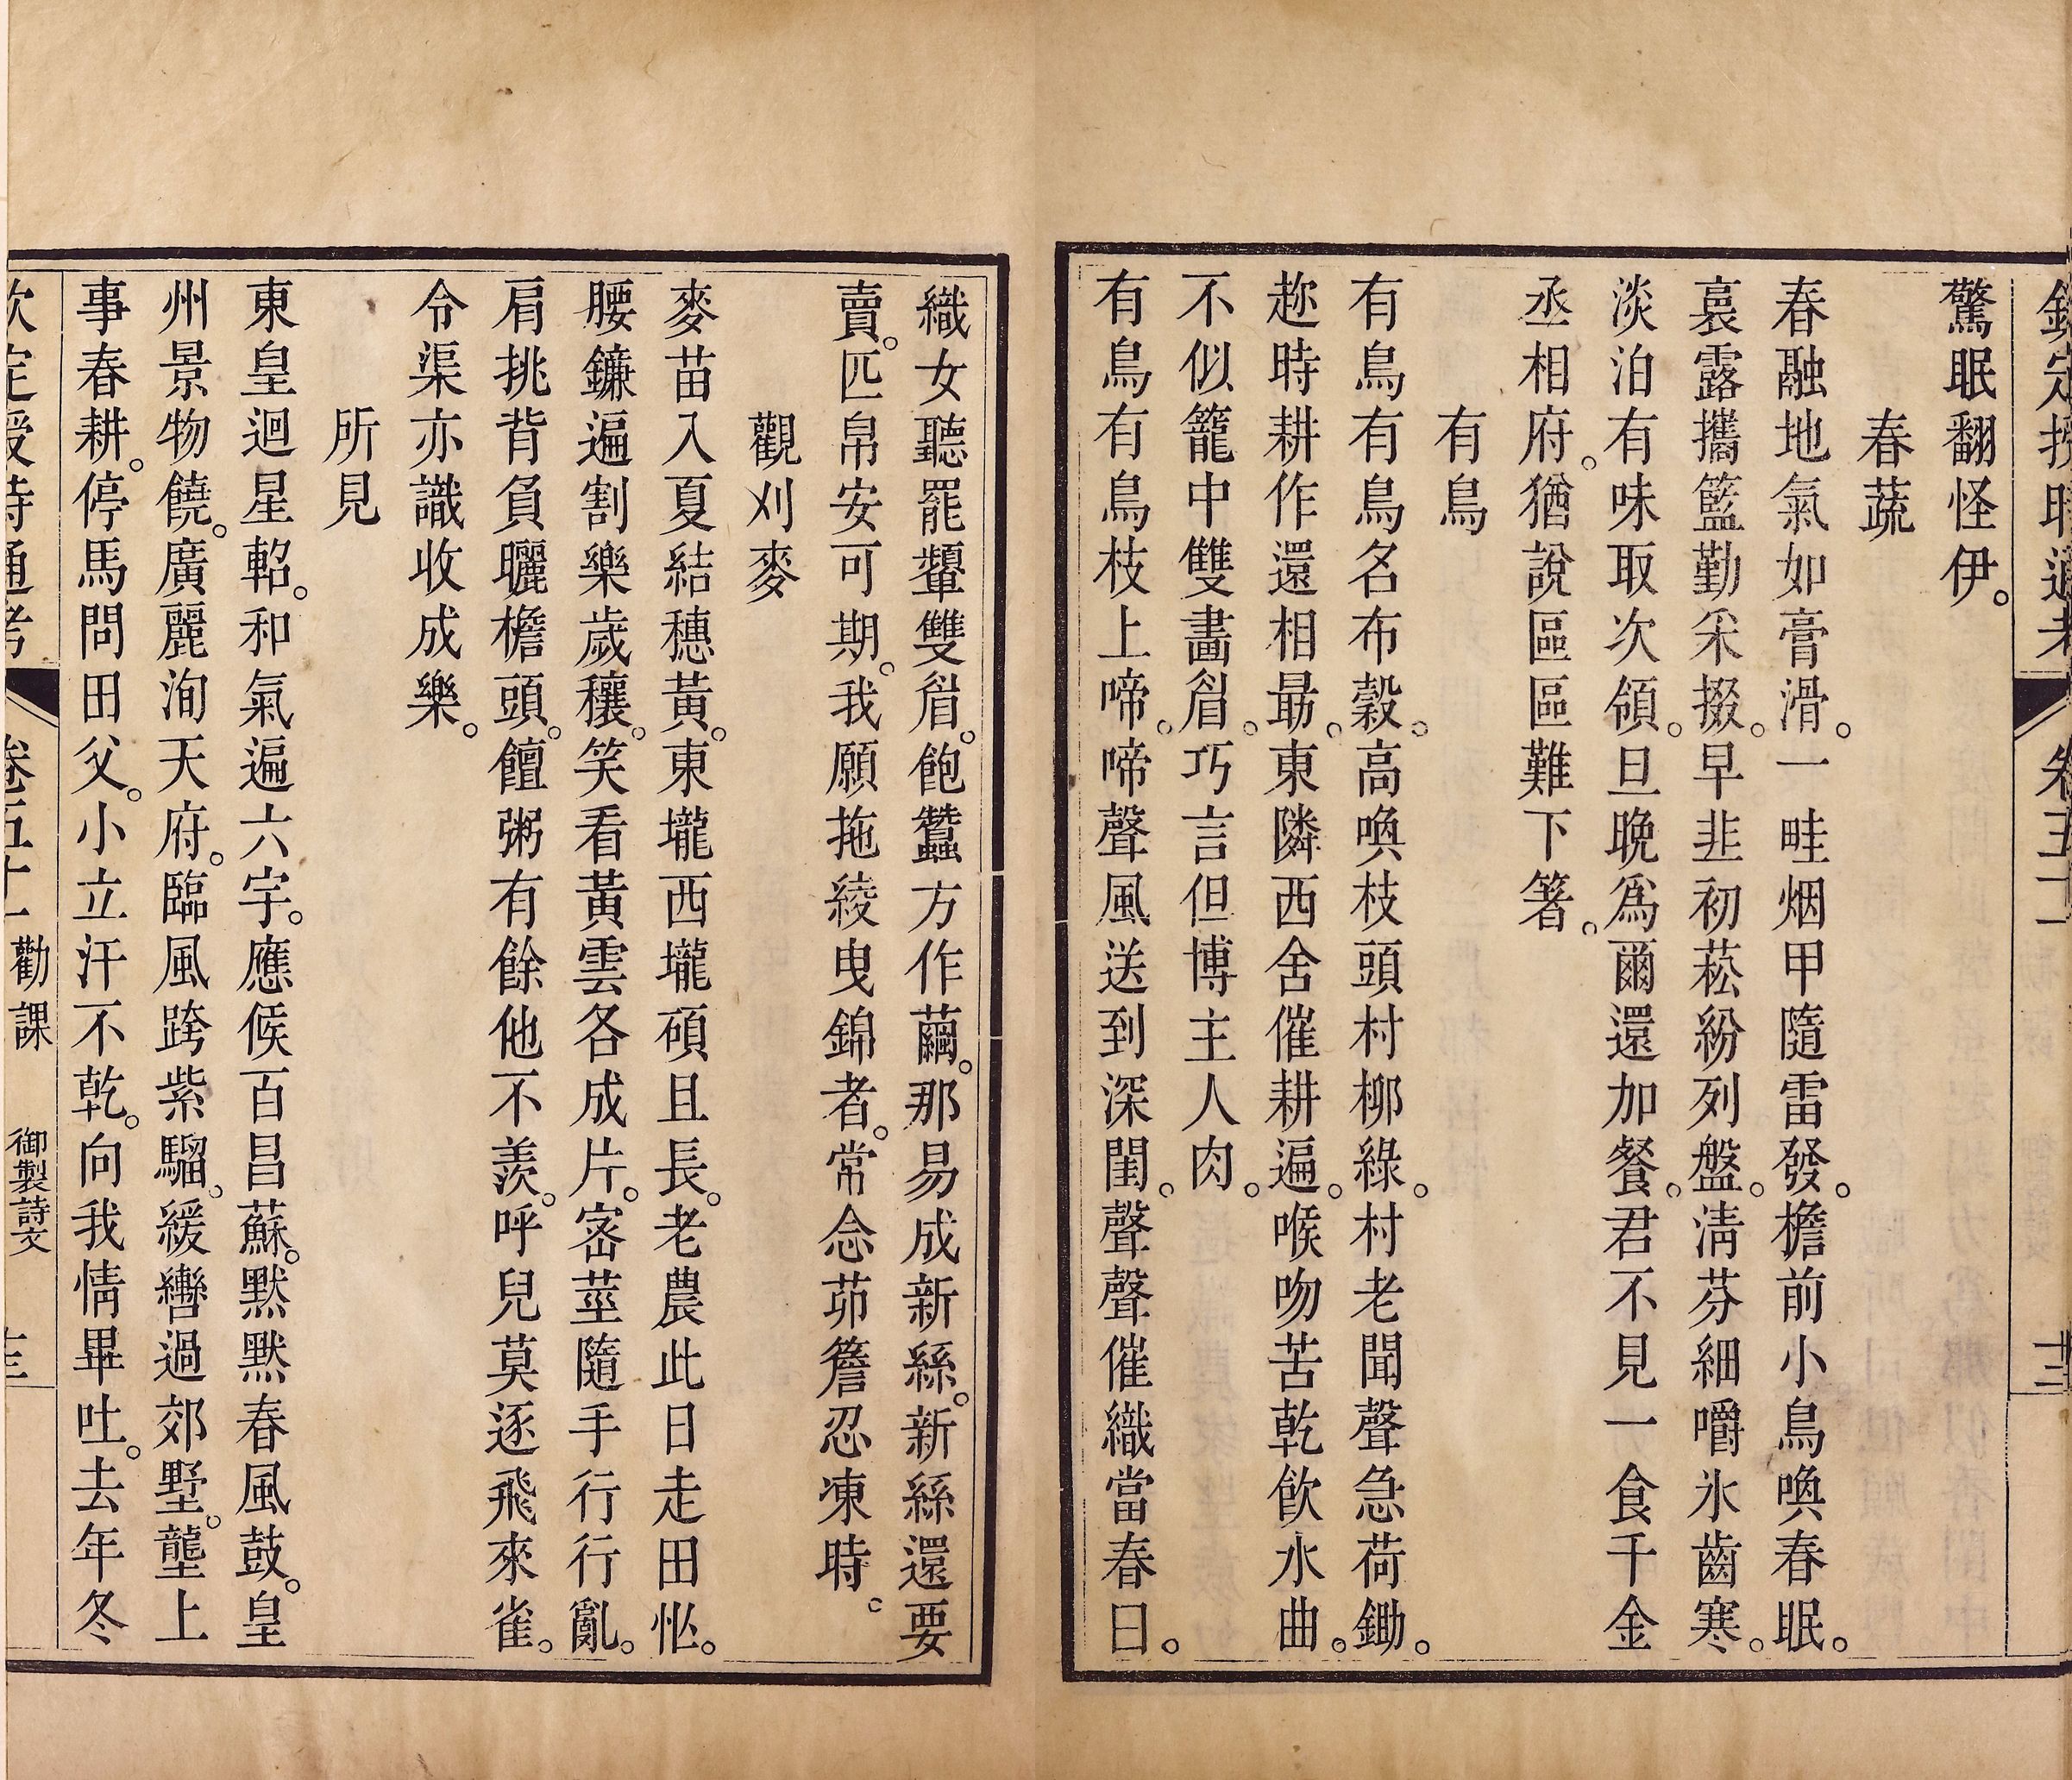 欽定授時通考 卷五十一 十三
驚眠翻怪伊。
春蔬
春融地氣如膏滑。一畦烟甲隨雷發。檐前小鳥喚春眠。
裛露攜籃勤采掇。早韭初菘紛列盤。淸芬細嚼氷齒寒。
淡泊有味取次領。旦晚爲爾還加餐。君不見一食千金
丞相府。猶說區區難下箸。
有鳥
有鳥有鳥名布穀。高喚枝頭村柳綠。村老聞聲急荷鋤。
趂時耕作還相勗。東隣西舍催耕遍。喉吻苦乾飮水曲。
不似籠中雙畵眉。巧言但博主人肉。
有鳥有鳥枝上啼。啼聲風送到深閨。聲聲催織當春日。
織女聽罷顰雙眉。飽蠶方作繭。那易成新絲。新絲還要
賣。匹帛安可期。我願拖綾曳錦者。常念茆簷忍凍時。
觀刈麥
麥苗入夏結穗黃。東壠西壠碩且長。老農此日走田忙。
腰鐮遍割樂歲穰。笑看黃雲各成片。密莖隨手行行亂。
肩挑背負曬檐頭。饘粥有餘他不羨。呼兒莫逐飛來雀。
令渠亦識收成樂。
所見
東皇迴星軺。和氣遍六宇。應候百昌蘇。默默春風鼓。皇
州景物饒。廣麗洵天府。臨風跨紫騮。緩轡過郊墅。壟上
事春耕。停馬問田父。小立汗不乾。向我情畢吐。去年冬
欽定授時通考 卷五十一 勸課 御製詩文 十三